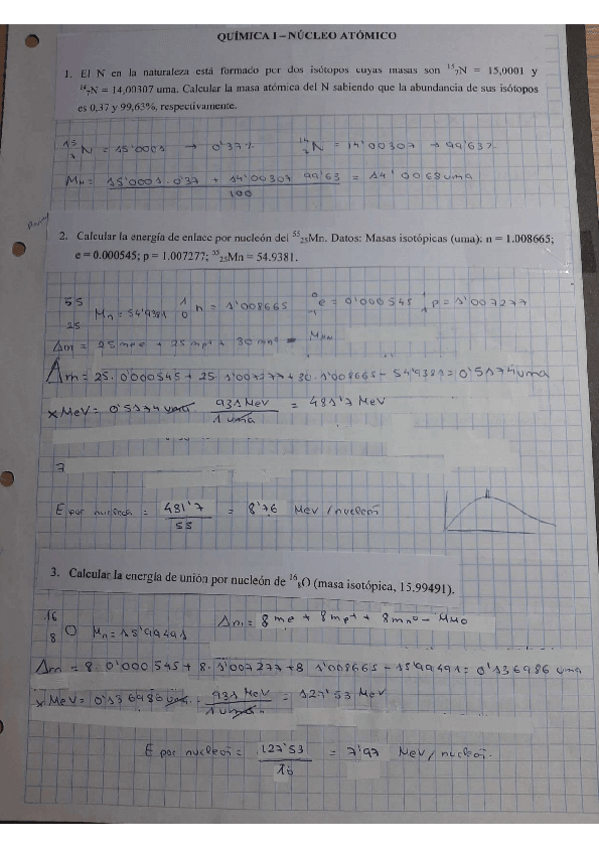 QUÍMICA I – NÚCLEO ATÓMICO
1. El N en la naturaleza está formado por dos isótopos cuyas masas son ¹⁵₇N = 15,0001 y
¹⁴₇N = 14,00307 uma. Calcular la masa atómica del N sabiendo que la abundancia de sus isótopos
es 0,37 y 99,63%, respectivamente.
¹⁵₇N = 15'0001 → 0'37% ¹⁴₇N = 14'00307 → 99'63%
M_N = 15'0001 · 0'37 + 14'00307 · 99'63 / 100 = 14'0068 uma
2. Calcular la energía de enlace por nucleón del ⁵⁵₂₅Mn. Datos: Masas isotópicas (uma): n = 1.008665;
e = 0.000545; p = 1.007277; ⁵⁵₂₅Mn = 54.9381.
55 25 Mn = 54'9381 ¹₀n = 1'008665 ⁰₋₁e = 0'000545 ¹₁p = 1'007277
Δm = 25 me + 25 mp⁺ + 30 mn⁰ - M_Mn
Δm = 25 · 0'000545 + 25 · 1'007277 + 30 · 1'008665 - 54'9381 = 0'5174 uma
x MeV = 0'5174 uma · 931 MeV / 1 uma = 481'7 MeV
7
E por nucleón = 481'7 / 55 = 8'76 MeV/nucleón
3. Calcular la energía de unión por nucleón de ¹⁶₈O (masa isotópica, 15.99491).
¹⁶₈O Mn = 15'99491 Δm = 8 me + 8 mp⁺ + 8 mn⁰ - MMO
Δm = 8 · 0'000545 + 8 · 1'007277 + 8 · 1'008665 - 15'99491 = 0'136986 uma
x MeV = 0'136986 uma · 931 MeV / 1 uma = 127'53 MeV
E por nucleón = 127'53 / 16 = 7'97 MeV/nucleón.